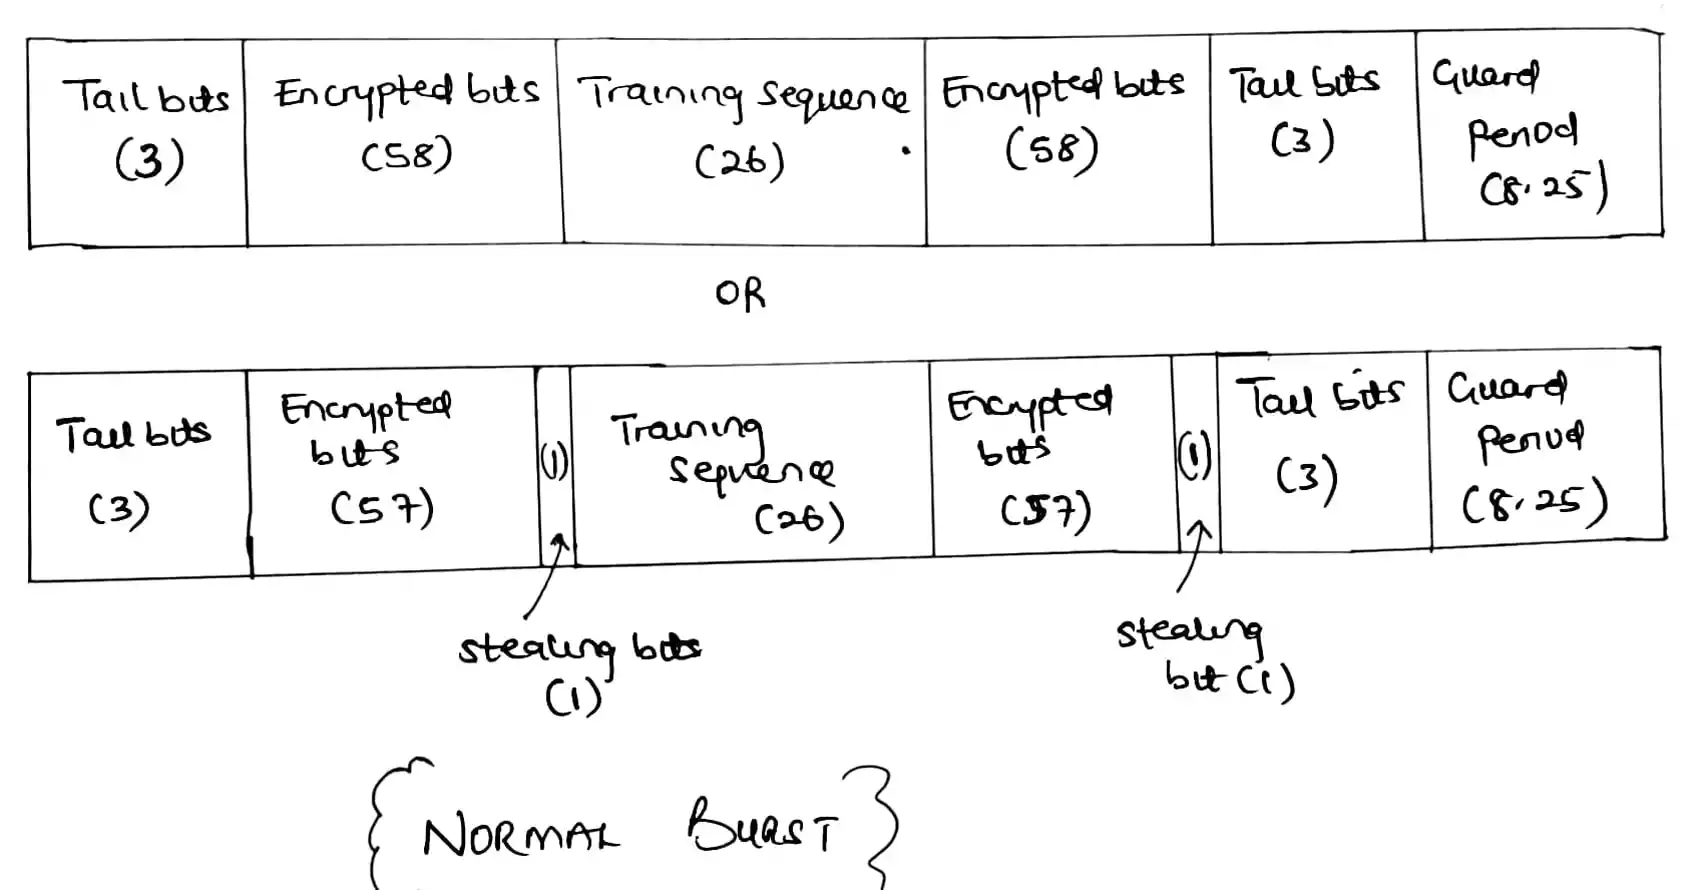 Tail bits
(3)
Encrypted bits
(58)
Training sequence
(26)
Encrypted bits
(58)
Tail bits
(3)
Guard
Period
(8.25)
OR
Tail bits
(3)
Encrypted
bits
(57)
(1)
Training
sequence
(26)
Encrypted
bits
(57)
(1)
Tail bits
(3)
Guard
Period
(8.25)
stealing bits
(1)
stealing
bit (1)
NORMAL BURST